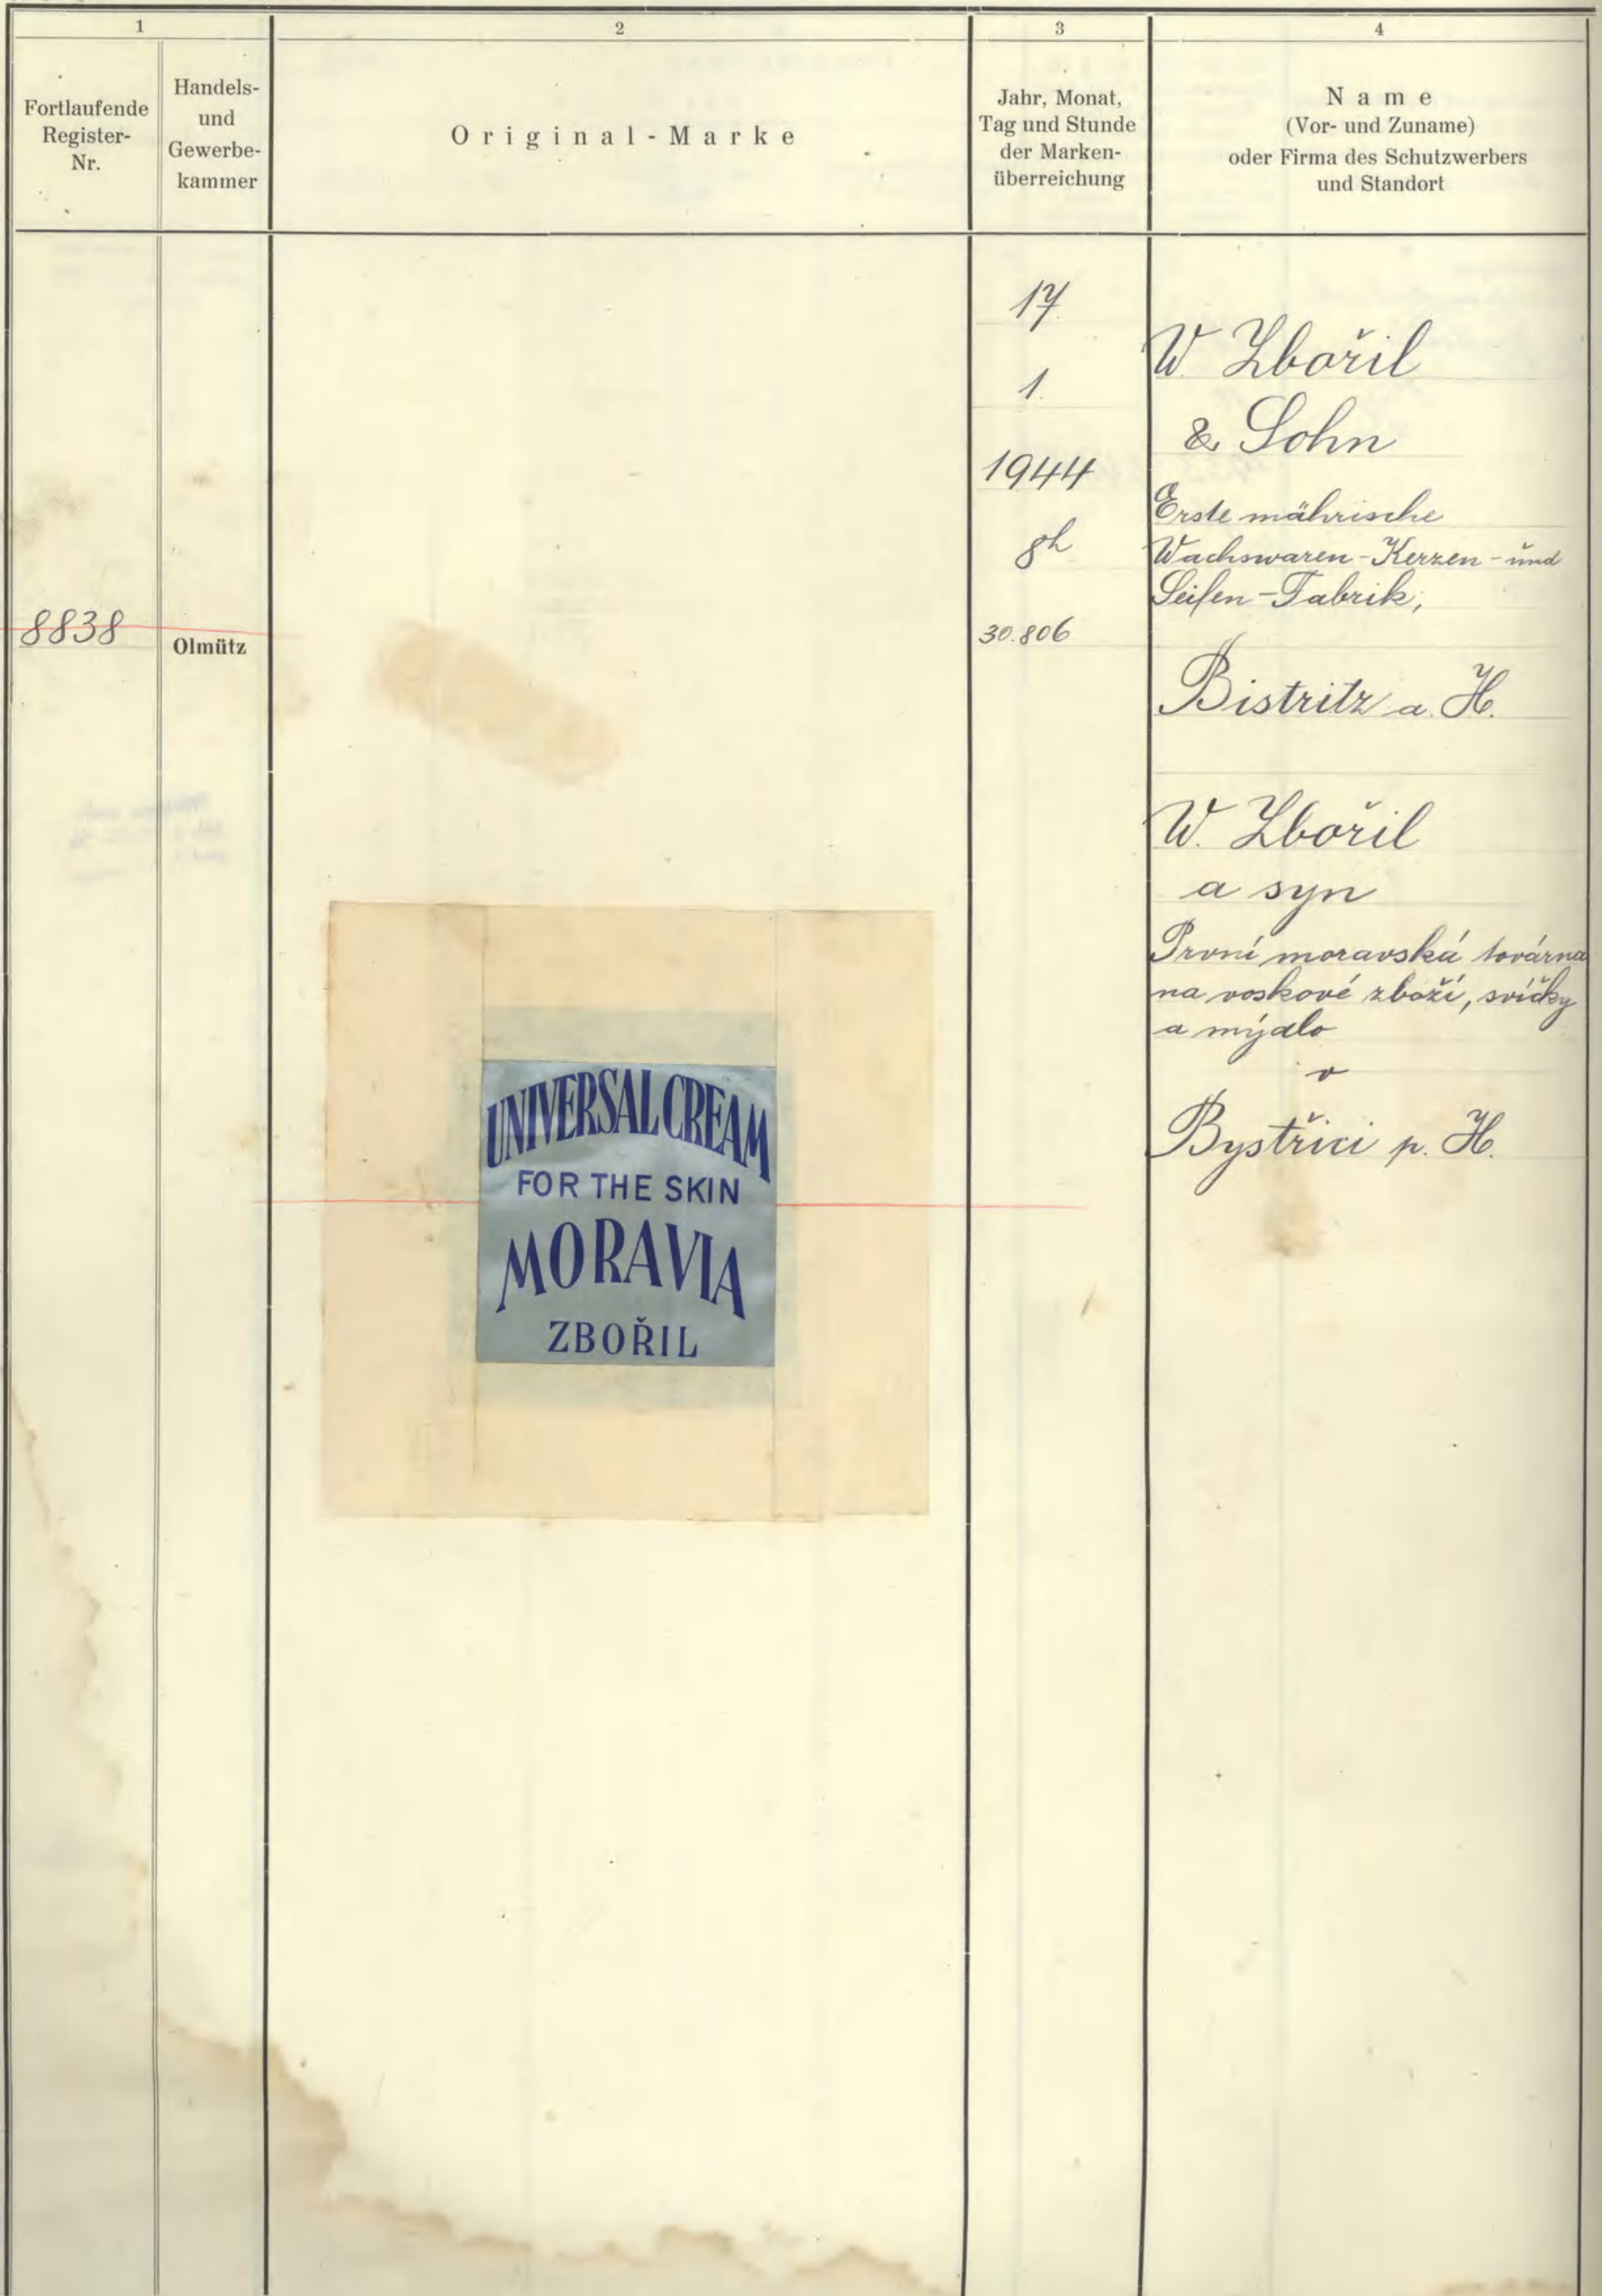 1
2
3
4
Fortlaufende
Register-
Nr.
Handels-
und
Gewerbe-
kammer
Original-Marke
Jahr, Monat,
Tag und Stunde
der Marken-
überreichung
Name
(Vor- und Zuname)
oder Firma des Schutzwerbers
und Standort
8838
Olmütz
UNIVERSAL CREAM
FOR THE SKIN
MORAVIA
ZBOŘIL
17.
1.
1944
8h
30.806
W. Zbořil
& Sohn
Erste mährische
Wachswaren-Kerzen-und
Seifen-Fabrik,
Bistritz a. H.
W. Zbořil
a syn
První moravská továrna
na voskové zboží, svíčky
a mýdlo
v
Bystřici p. H.